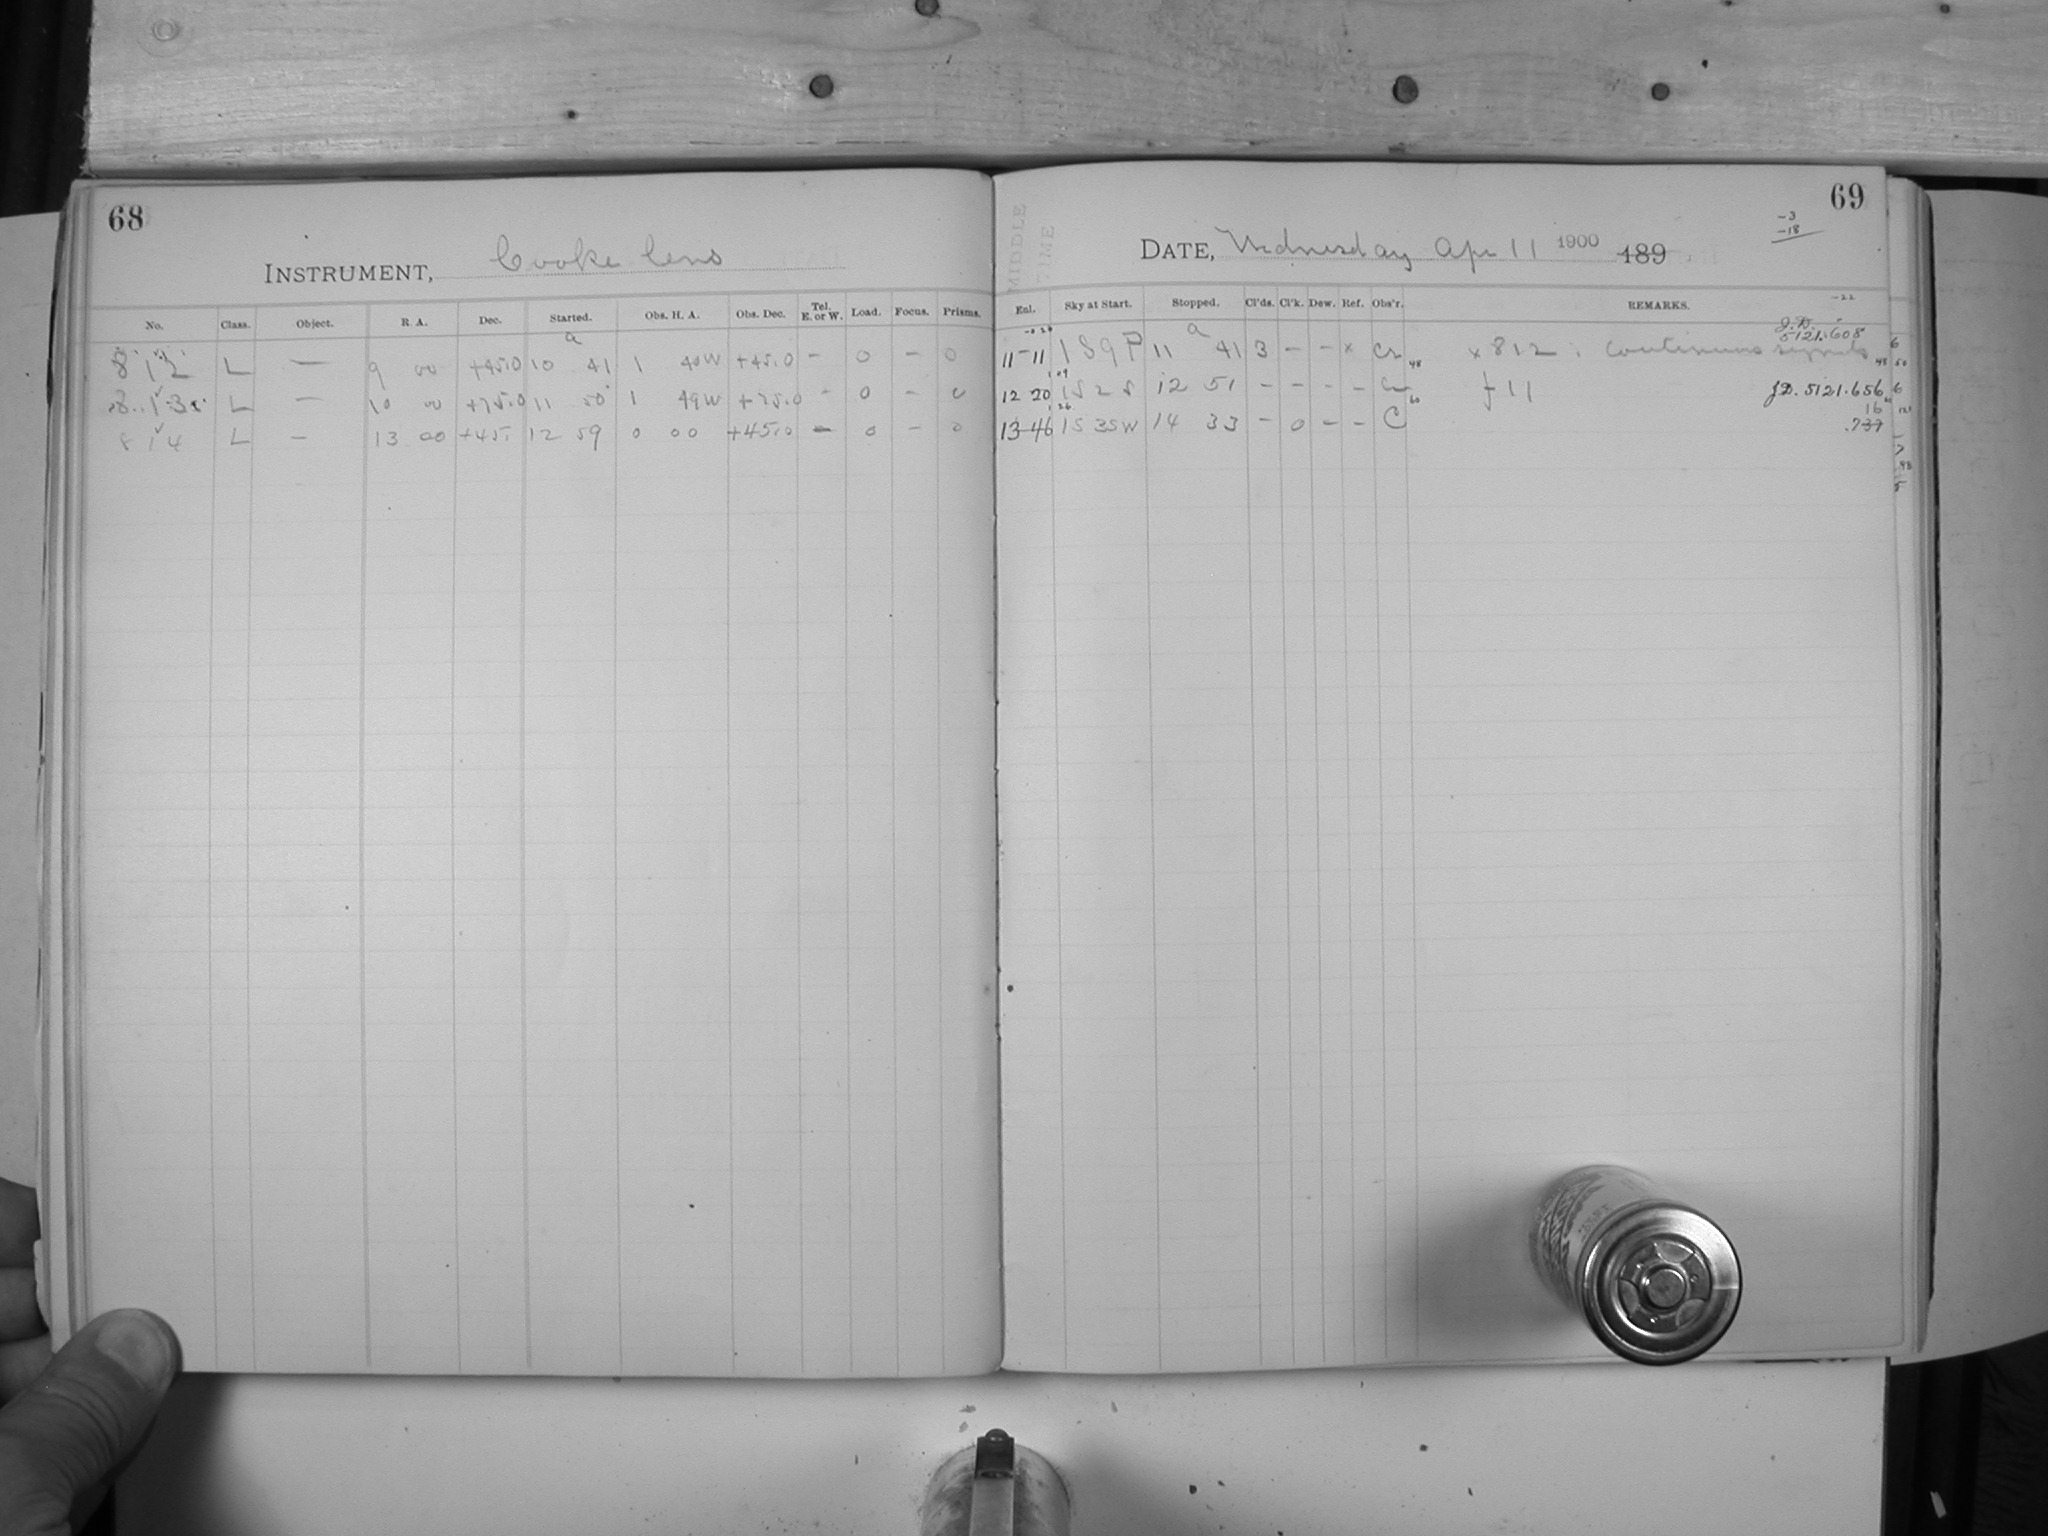 68
INSTRUMENT, Cooke Lens
No. Class. Object. R. A. Dec. Started. Obs. H. A. Obs. Dec. Tel. E. or W. Load. Focus. Prisms.
a
812 L — 9 00 +45.0 10 41 1 40W +45.0 – 0 – 0
813 L — 10 00 +75.0 11 50 1 49W +75.0 – 0 – 0
814 L — 13 00 +45. 12 59 0 00 +45.0 – 0 – 0
69
MIDDLE
TIME
-3
-18
DATE, Wednesday Apr 11 1900 189
Enl. Sky at Start. Stopped. Cl'ds. Cl'k. Dew. Ref. Obs'r. REMARKS.
-22
J.D.
5121.608
11-11 1S9P 11 a 41 3 – – x 48 x 812 : Continuous signals
12 20 1S2S 12 51 – – – – 60 f 11 JD. 5121.656
16
13-46 1S3SW 14 33 – 0 – – C .737